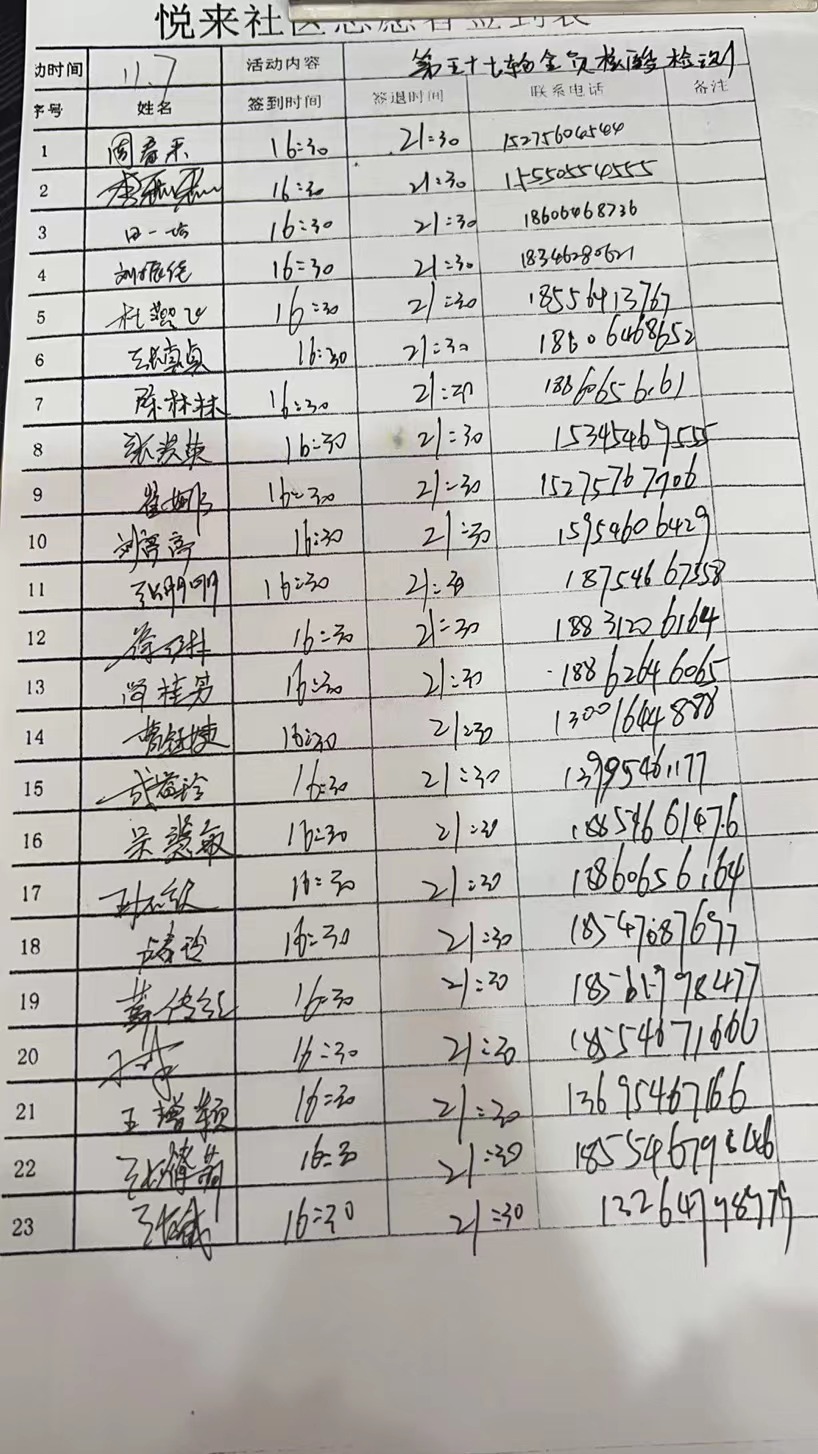 悦来社区志愿者签到表
动时间 11.7 活动内容 第五十七轮全员核酸检测
序号 姓名 签到时间 签退时间 联系电话 备注
1 16:30 21:30 15275604544
2 16:30 21:30 15550554555
3 田一 16:30 21:30 18606468736
4 刘 16:30 21:30 18346280621
5 杜 16:30 21:30 18556413767
6 张真真 16:30 21:30 18606468652
7 陈林林 16:30 21:30
8 张洪英 16:30 21:30 15345469555
9 崔娜 16:30 21:30 15275767706
10 刘 16:30 21:30 15954606429
11 张明明 16:30 21:30 18754667558
12 徐 16:30 21:30 18831206164
13 尚桂芳 16:30 21:30 18862646065
14 曹 16:30 21:30 13001644888
15 16:30 21:30 13995461177
16 吴慧敏 16:30 21:30 18854661476
17 16:30 21:30 13860656164
18 16:30 21:30 18547087697
19 16:30 21:30 18561998477
20 16:30 21:30 18554671660
21 王增颖 16:30 21:30 13695467166
22 16:30 21:30
23 张 16:30 21:30 13264798979